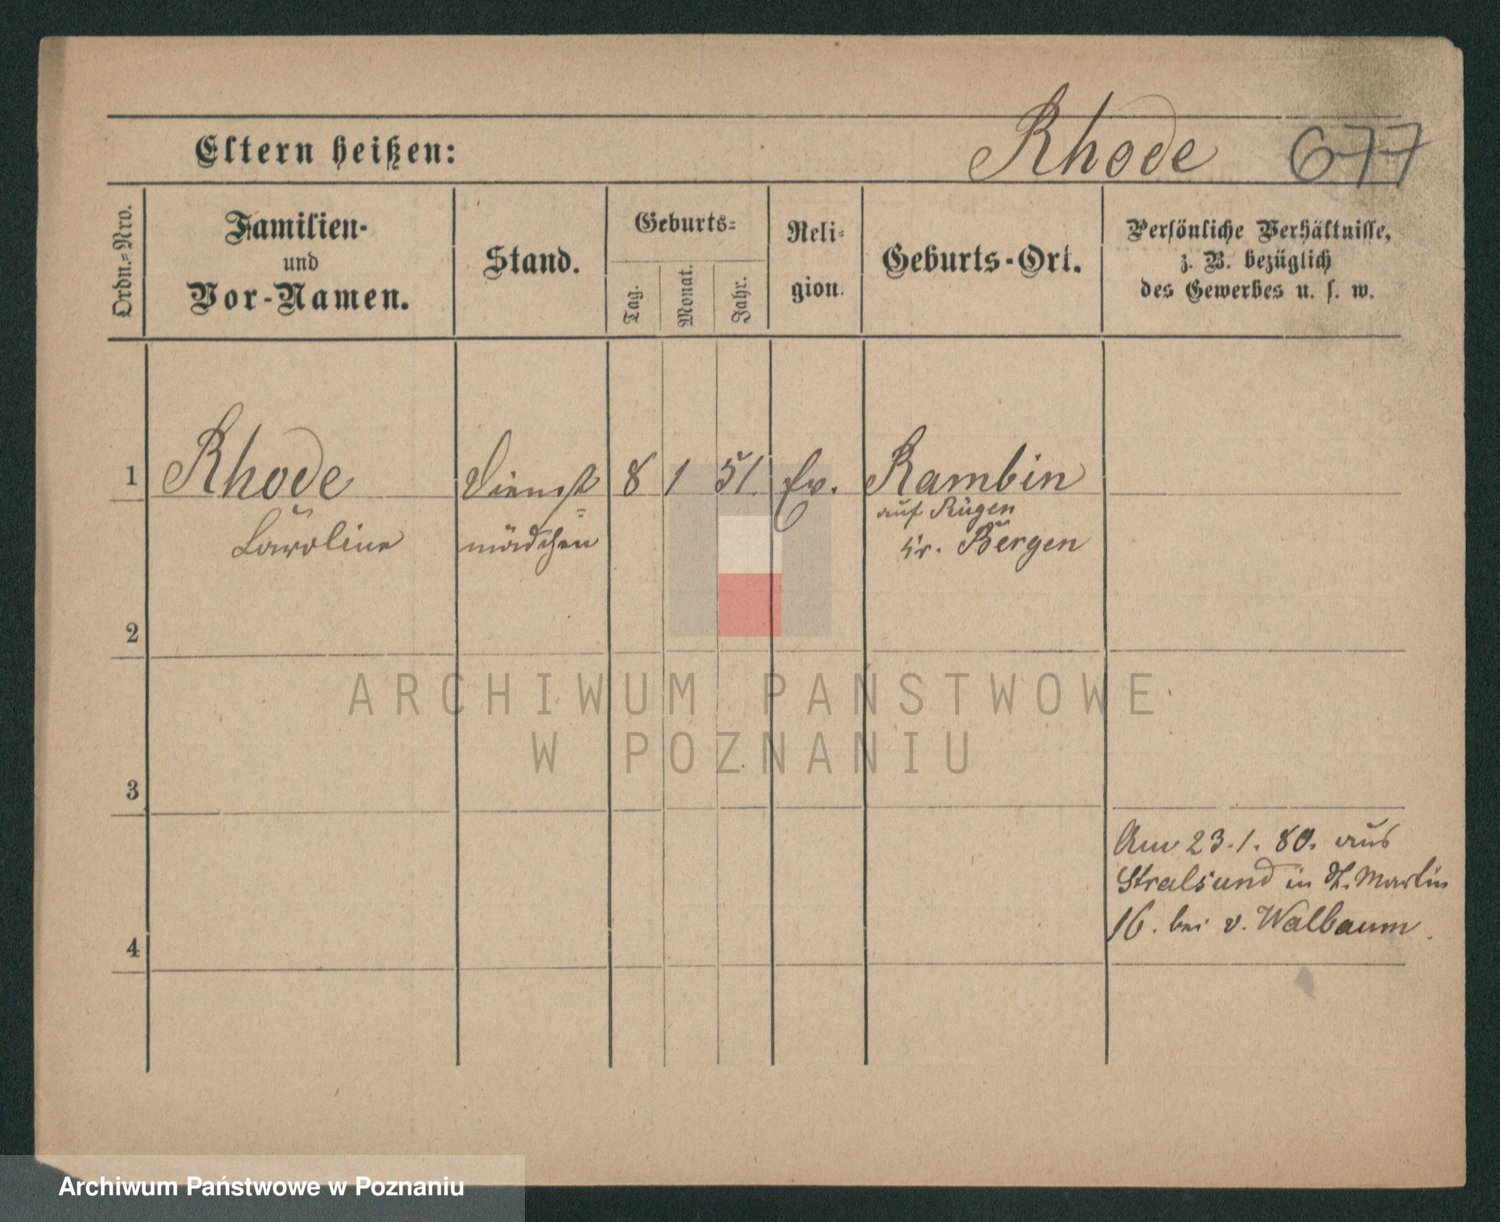 Rhode 677
Eltern heißen:
Ordn.-Nro.
Familien-
und
Vor-Namen.
Stand.
Geburts-
Tag.
Monat.
Jahr.
Reli-
gion.
Geburts-Ort.
Persönliche Verhältnisse,
z. B. bezüglich
des Gewerbes u. s. w.
1 Rhode Dienst 8 1 51. Ev. Rambin
auf Rügen
Caroline mädchen Kr. Bergen
2
ARCHIWUM PAŃSTWOWE
W POZNANIU
3
Am 23.1.80. aus
Stralsund in St. Martin
16. bei v. Walbaum.
4
Archiwum Państwowe w Poznaniu